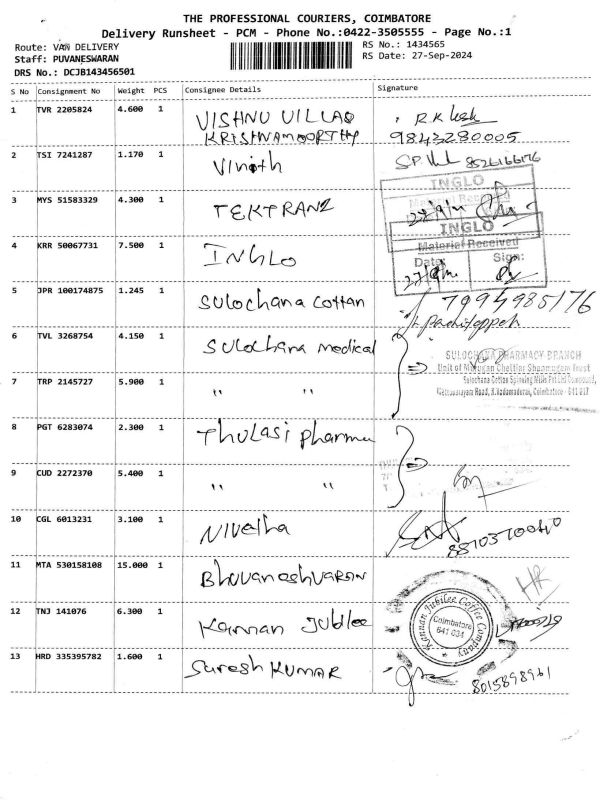 THE PROFESSIONAL COURIERS, COIMBATORE
Delivery Runsheet - PCM - Phone No.:0422-3505555 - Page No.:1
Route: VAN DELIVERY
RS No.: 1434565
Staff: PUVANESWARAN
RS Date: 27-Sep-2024
DRS No.: DCJB143456501
S No Consignment No Weight PCS Consignee Details Signature
1 TVR 2205824 4.600 1 VISHNU VILLAS R.K
KRISHNAMOORTHY 9843280005
2 TSI 7241287 1.170 1 Vinoth S.P. 8526166176
INGLO
3 MYS 51583329 4.300 1 TEKTRANZ
INGLO
Material Received
4 KRR 50067731 7.500 1 INGLO
Date: Sign:
5 JPR 100174875 1.245 1 Sulochana Cottan 7994985176
6 TVL 3268754 4.150 1 Sulochana medical
SULOCHANA PHARMACY BRANCH
Unit of Murugan Chettiar Shanmugam Trust
7 TRP 2145727 5.900 1 " "
Sulochana Cotton Spinning Mills Pvt Ltd Compound,
Coimbatore - 641 017
8 PGT 6283074 2.300 1 Thulasi pharma
9 CUD 2272370 5.400 1 " "
10 CGL 6013231 3.100 1 Nivetha
8870370040
11 MTA 530158108 15.000 1 BhuvaneshvaraN
HR
12 TNJ 141076 6.300 1 Kannan Jubilee
Kannan Jubilee Coffee Company
Coimbatore
641 034
13 HRD 335395782 1.600 1 Suresh KUMAR
8015898961